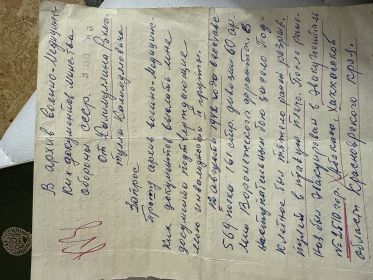 В архив Военно-Медицинс
ких документов министер
обороны СССР.
от
Запрос
Прошу архив военно-Медицинс
ких документов выслать мне
документы подтверждающие
мою инвалидность II группы.
В августе 1942 года в составе
569 полка 161 стр. дивизии 60 ар
мии Воронежского фронта. В
наступательном бою около Под
Клетное был тяжело ранен разрыв.
пулей в правую ногу. После ране-
ния был эвакуирован в эвакогоспиталь
№ 2510 гор. Абакана, Хакасской
области Красноярского края.